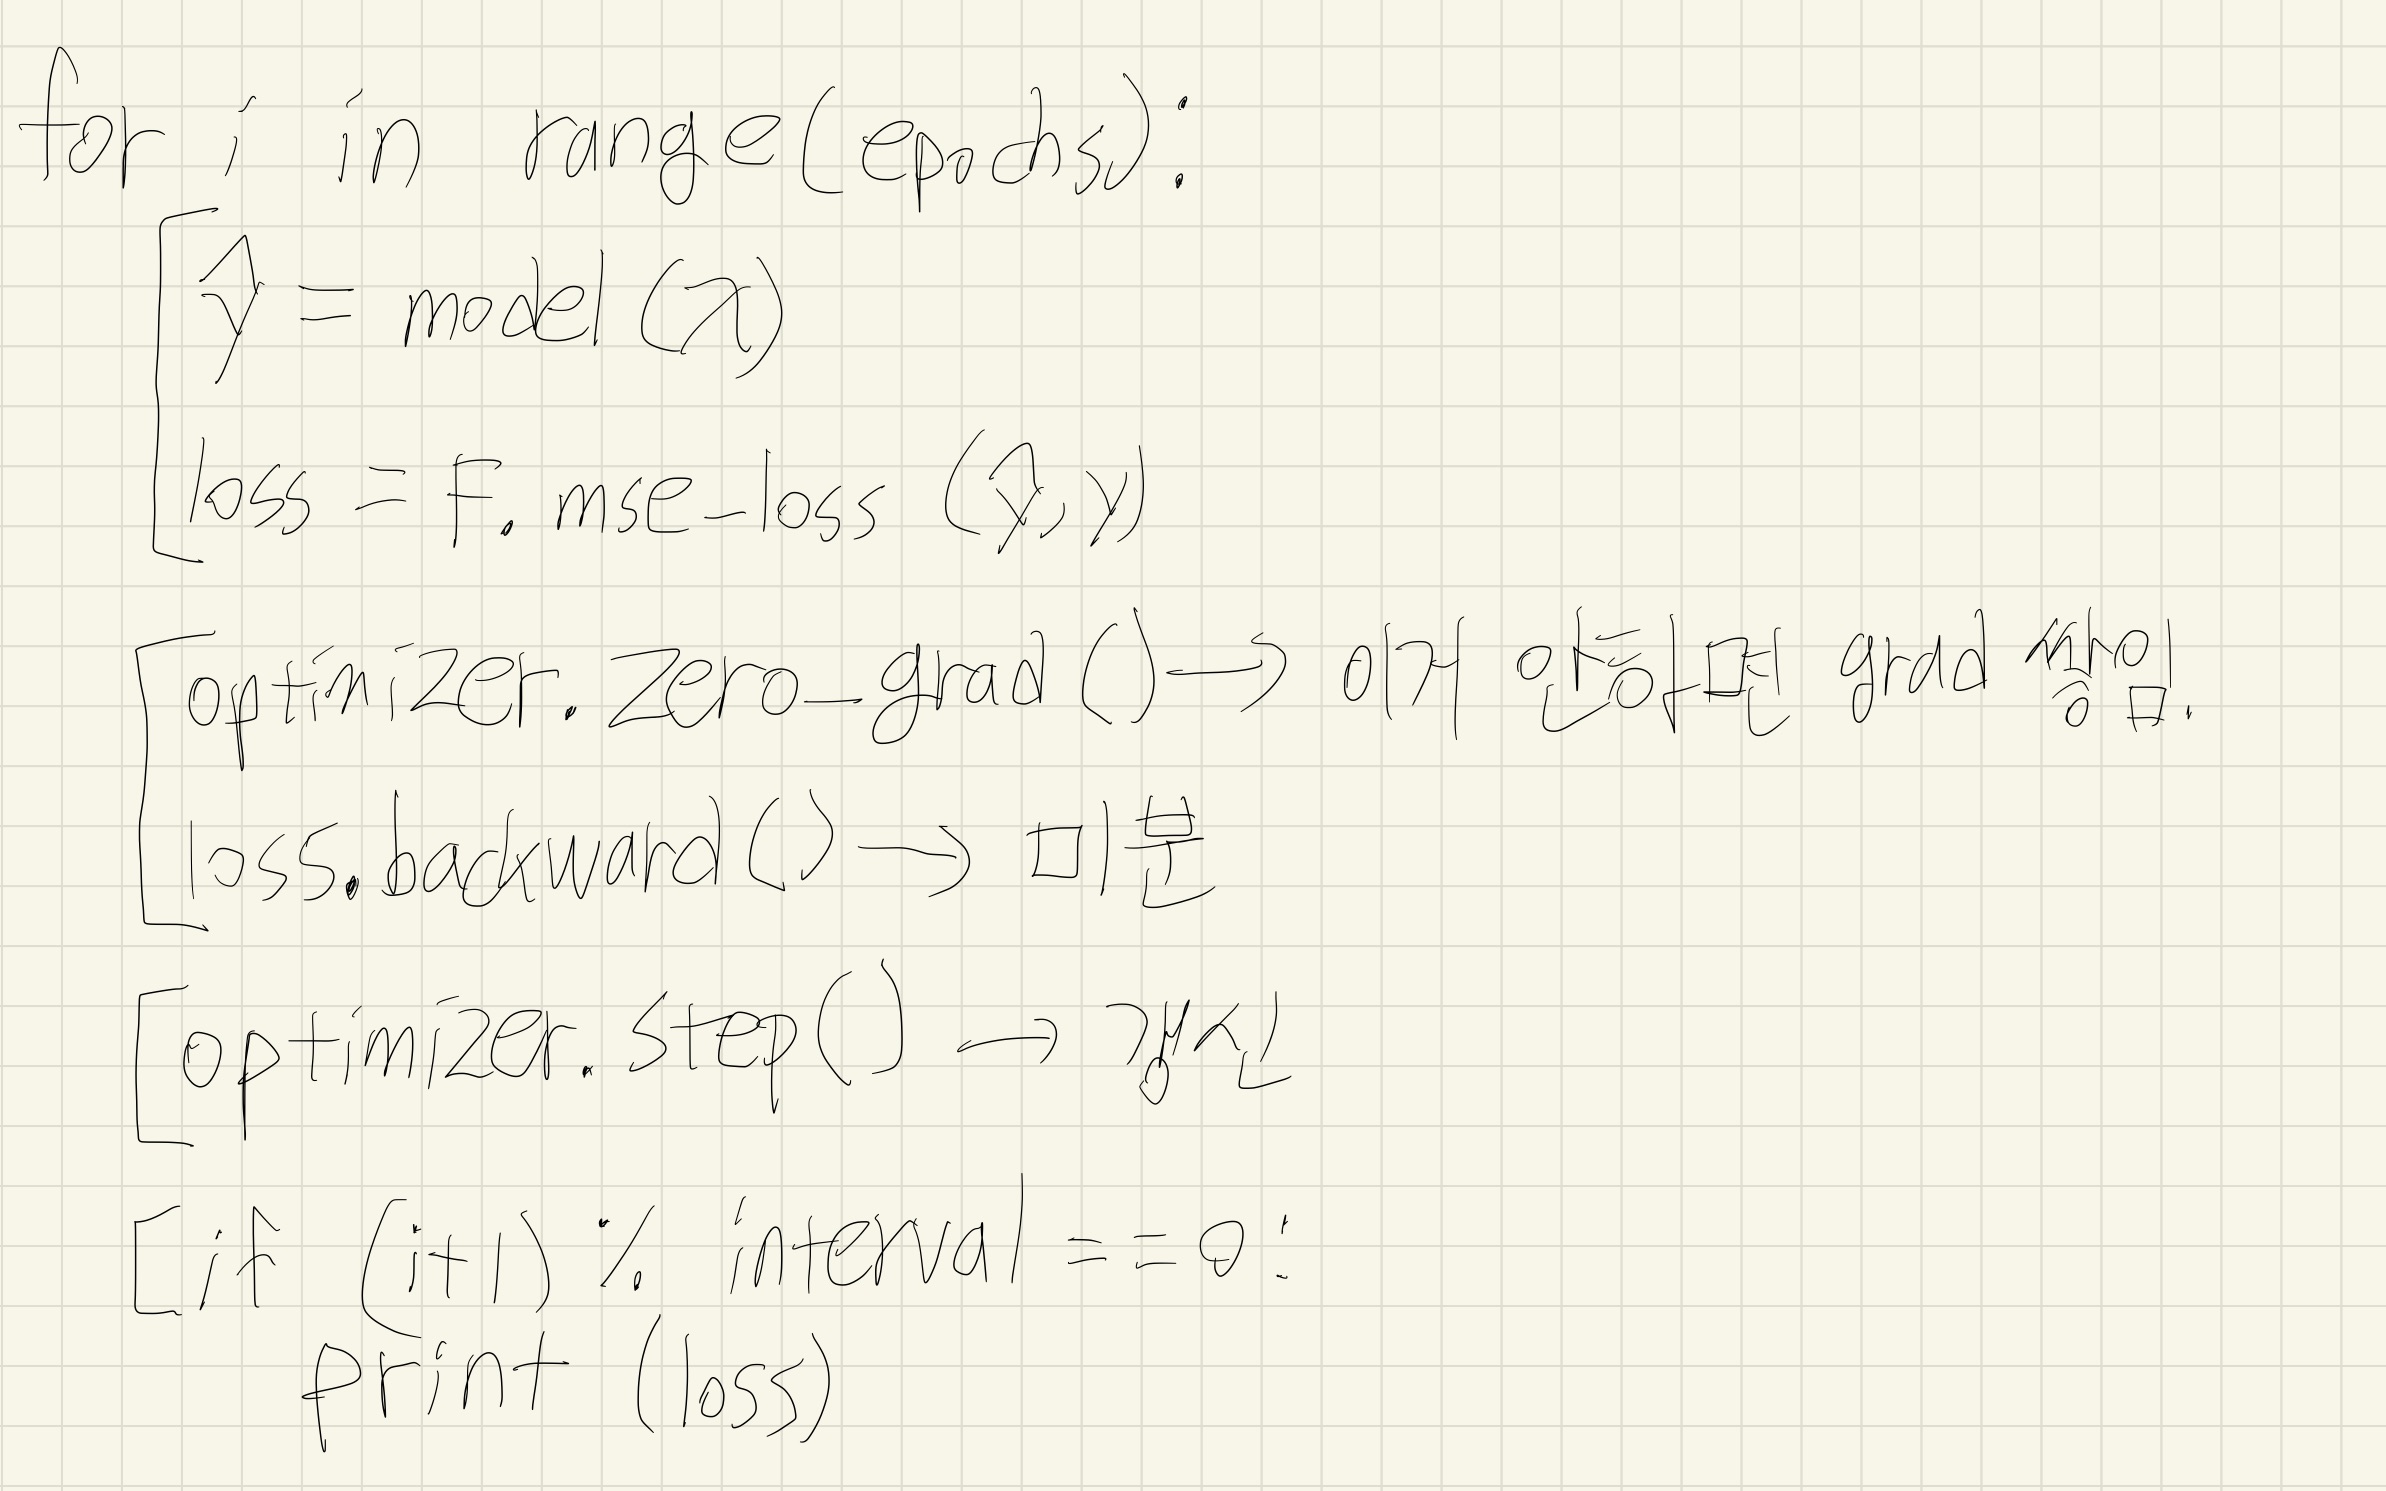 for i in range(epochs):
ŷ = model(x)
loss = F.mse_loss (ŷ, y)
optimizer.zero_grad() → 이거 안하면 grad 쌓임.
loss.backward() → 미분
optimizer.step() → 갱신
if (i+1) % interval == 0:
print (loss)